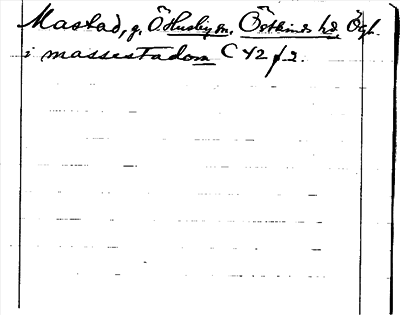 Mastad, g. Ö. Husby sn. Östkinds hd. Ögl.
i massestadom C 42 f. 2.